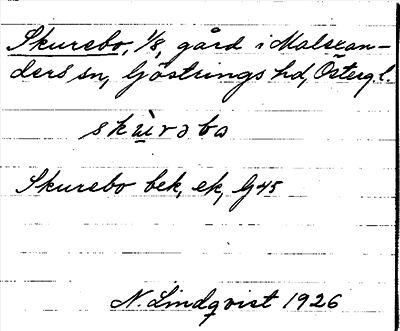 Skurebo, 1/8, gård i Malexan-
ders sn, Göstrings hd, Östergl.
skùrəbo
Skurebo bek, ek, G45
N. Lindqvist 1926